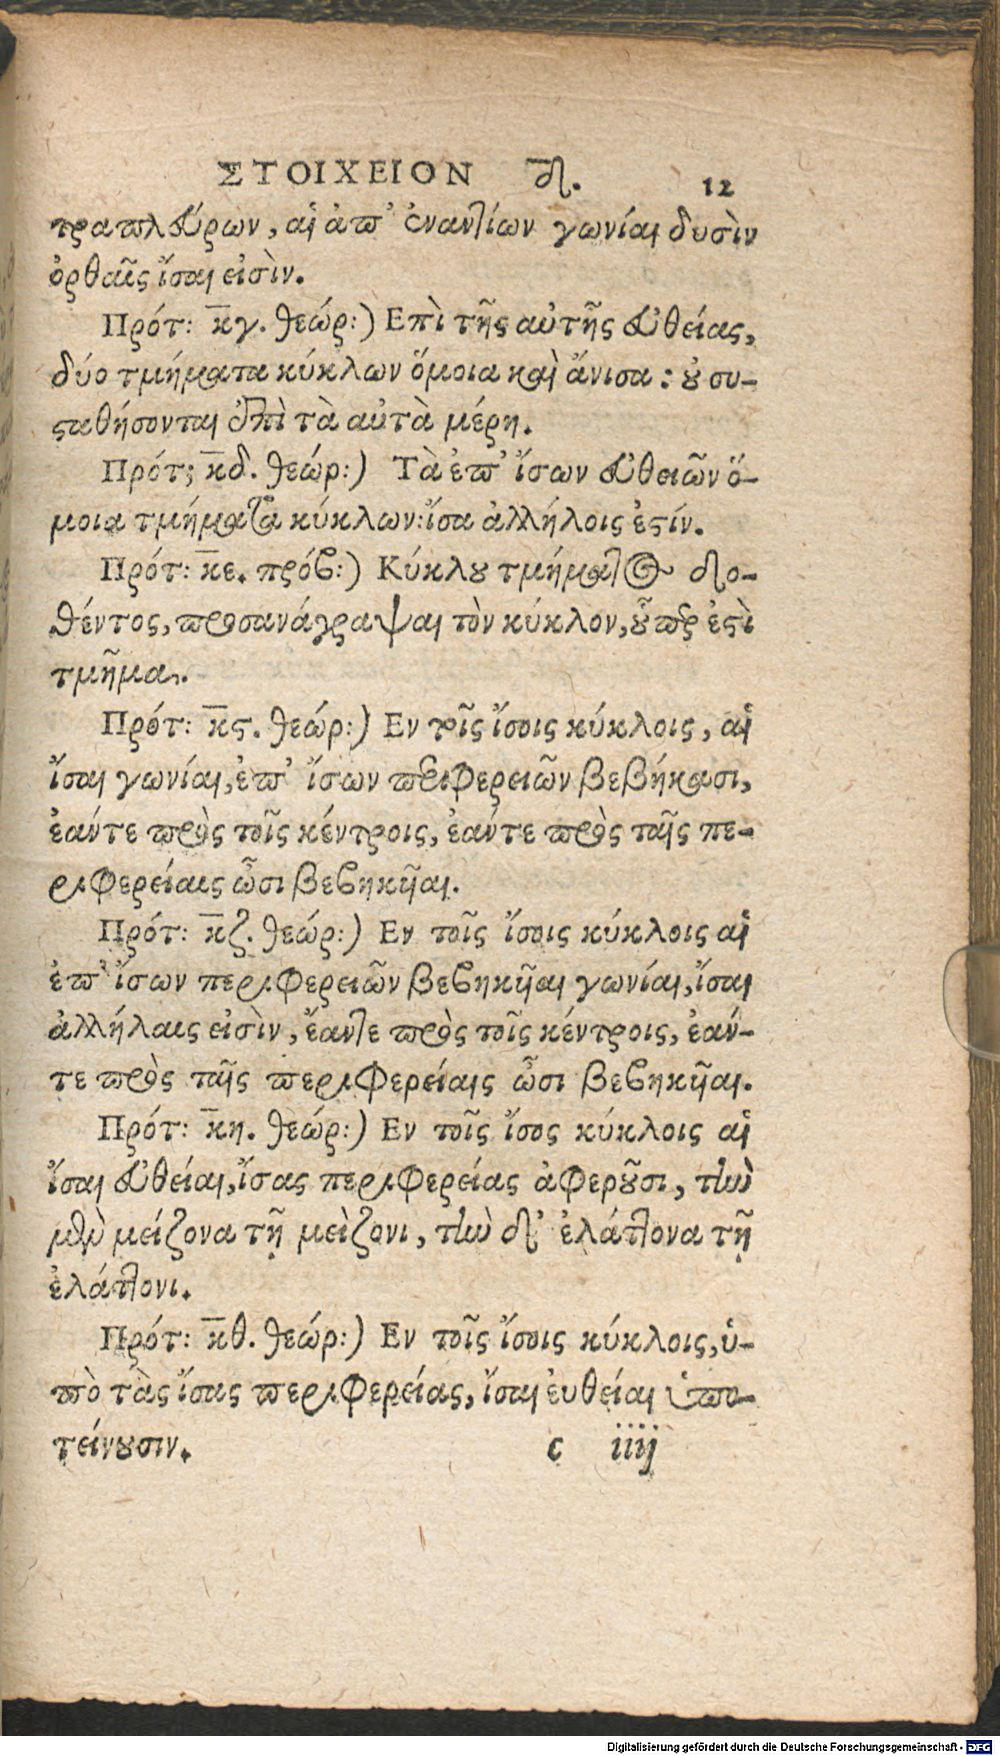 ΣΤΟΙΧΕΙΟΝ δ. 12
τραπλεύρων, αἱ ἀπ' ἐναντίων γωνίαι δυσὶν
ὀρθαῖς ἴσαι εἰσὶν.
Πρότ: κ̅γ. θεώρ:) Επὶ τῆς αὐτῆς εὐθείας,
δύο τμήματα κύκλων ὅμοια καὶ ἄνισα: ȣ συ-
ϛαθήσονται ἐπὶ τὰ αὐτὰ μέρη.
Πρότ; κ̅δ. θεώρ:) Τὰ ἐπ' ἴσων εὐθειῶν ὅ-
μοια τμήματα κύκλων: ἴσα ἀλλήλοις ἐϛίν.
Πρότ: κ̅ε. πρόβ:) Κύκλȣ τμήματος δο-
θέντος, προσανάγραψαι τὸν κύκλον, ȣ̔͂περ ἐϛὶ
τμῆμα.
Πρότ: κ̅ς. θεώρ:) Εν τοῖς ἴσοις κύκλοις, αἱ
ἴσαι γωνίαι, ἐπ' ἴσων περιφερειῶν βεβήκασι,
ἐάντε πρὸς τοῖς κέντροις, ἐάντε πρὸς ταῖς πε-
ριφερείαις ὦσι βεβηκῆαι.
Πρότ: κ̅ζ. θεώρ:) Εν τοῖς ἴσοις κύκλοις αἱ
ἐπ' ἴσων περιφερειῶν βεβηκῆαι γωνίαι, ἴσαι
ἀλλήλαις εἰσὶν, ἔαντε πρὸς τοῖς κέντροις, ἐάν-
τε πρὸς ταῖς περιφερείαις ὦσι βεβηκῆαι.
Πρότ: κ̅η. θεώρ:) Εν τοῖς ἴσος κύκλοις αἱ
ἴσαι εὐθείαι, ἴσας περιφερείας ἀφερȣ͂σι, τὴν
μὲν μείζονα τῇ μεὶζονι, τὴν δ' ἐλάττονα τῇ
ἐλάττονι.
Πρότ: κ̅θ. θεώρ:) Εν τοῖς ἴσοις κύκλοις, ὑ-
πὸ τὰς ἴσας περιφερείας, ἴσαι ἐυθείαι ὑπο-
τείνȣσιν. c iiij
Digitalisierung gefördert durch die Deutsche Forschungsgemeinschaft - DFG